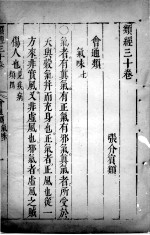 類經三十卷
張介賓類
會通類
氣味上
○氣者有真氣有正氣有邪氣真氣者所受於
天與穀氣并而充身也正氣者正風也從一
方來非實風又非虛風也邪氣者虛風之賊
傷人也